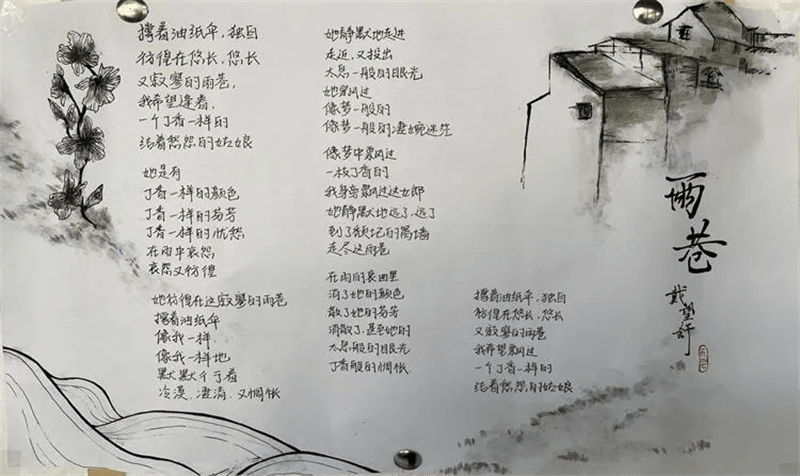 雨巷
戴望舒
撑着油纸伞，独自
彷徨在悠长，悠长
又寂寥的雨巷，
我希望逢着，
一个丁香一样的
结着愁怨的姑娘
她是有
丁香一样的颜色
丁香一样的芬芳
丁香一样的忧愁
在雨中哀怨
哀怨又彷徨
她彷徨在这寂寥的雨巷
撑着油纸伞
像我一样
像我一样地
默默彳亍着
冷漠、凄清、又惆怅
她静默地走近
走近，又投出
太息一般的眼光
她飘过
像梦一般的
像梦一般的凄婉迷茫
像梦中飘过
一枝丁香的
我身旁飘过这女郎
她静默地远了，远了
到了颓圮的篱墙
走尽这雨巷
在雨的哀曲里
消了她的颜色
散了她的芬芳
消散了，甚至她的
太息般的眼光
丁香般的惆怅
撑着油纸伞，独自
彷徨在悠长，悠长
又寂寥的雨巷
我希望飘过
一个丁香一样的
结着愁怨的姑娘